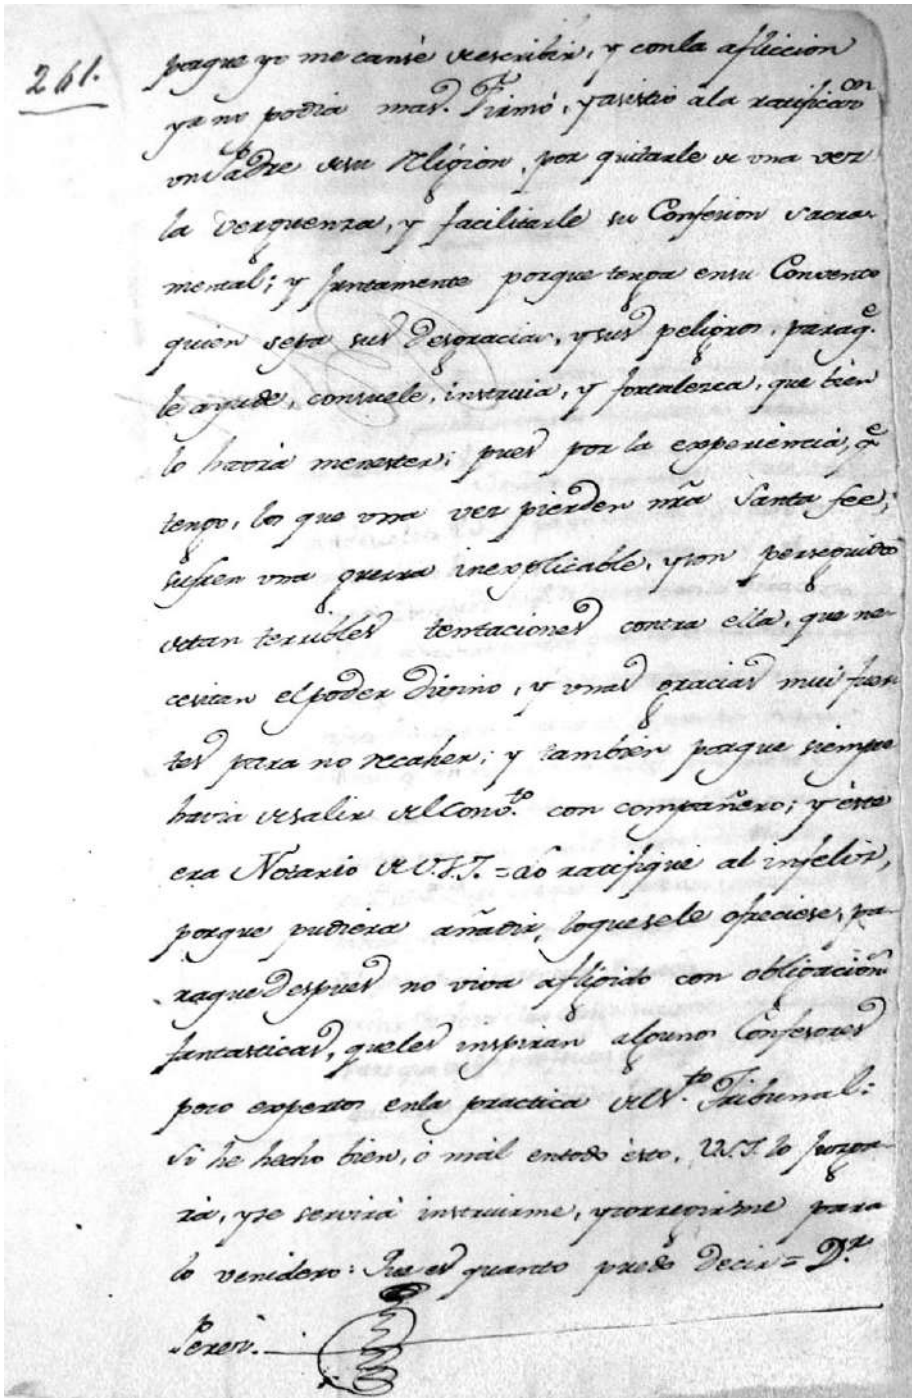 261.
porque yo me cansè de escribir, y con la afliccion
ya no podia mas. Firmó, y asistio a la ratificacion
un Padre de su religion, por quitarle de una vez
la verguenza, y facilitarle su Confesion sacra-
mental; y juntamente porque tenga en su Convento
quien sepa sus desgracias, y sus peligros, paraq.e
le ayude, consuele, instruia, y fortalezca, que bien
lo havrá menester; pues por la experiencia, q.e
tengo, los que una vez pierden nrã Santa fee,
sufren una guerra inexplicable, y son perseguidos
de tan terribles tentaciones contra ella, que ne-
cesitan el poder Divino, y unas gracias mui fuer
tes para no recaher; y tambien porque siempre
havia de salir del Conv.to con compañero; y éste
era Notario de V.S.I. = Lo ratifiquè al infeliz,
porque pudiera añadir, lo que se le ofreciese, pa-
raque despues no viva afligido con obligacion.s
fantasticas, que les inspiran algunos Confesores
poco expertos en la practica de ese S.to Tribunal:
Si he hecho bien, ó mal en todo èsto, V.S.I. lo juzga-
rá, y se servirá instruirme, y corregirme para
lo venidero: Que es quanto puedo decir = D.r
Perez.